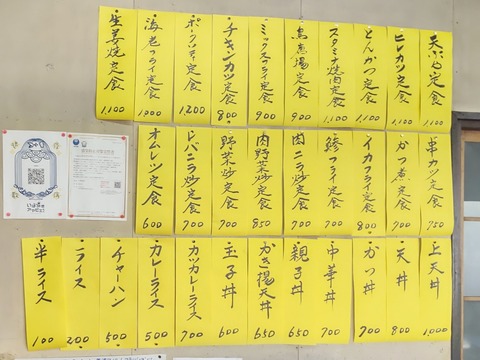 天ぷら定食 1,100
ヒレカツ定食 1,100
とんかつ定食 1,100
スタミナ焼肉定食 1,100
鳥唐揚定食 900
ミックスフライ定食 900
チキンカツ定食 800
ポークソテイ定食 1,200
海老フライ定食 1,000
生姜焼定食 1,100
串カツ定食 750
かつ煮定食 700
イカフライ定食 800
鯵フライ定食 700
肉ニラ炒定食 700
肉野菜炒定食 850
野菜炒定食 700
レバニラ炒定食 700
オムレツ定食 600
上天丼 1,000
天丼 800
かつ丼 700
中華丼 700
親子丼 650
かき揚天丼 650
玉子丼 600
カツカレーライス 700
カレーライス 500
チャーハン 500
ライス 200
半ライス 100